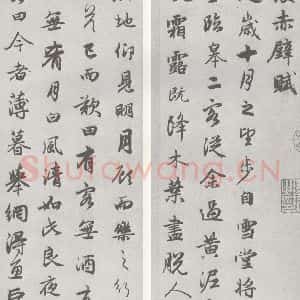 後赤壁賦
歲十月之望步自雪堂將
臨皋二客從余過黃泥
霜露既降木葉盡脫人
地仰見明月顧而樂之行
答已而歎曰有客無酒有
無肴月白風清如此良夜
曰今者薄暮舉網得魚巨
Shufawang.CN